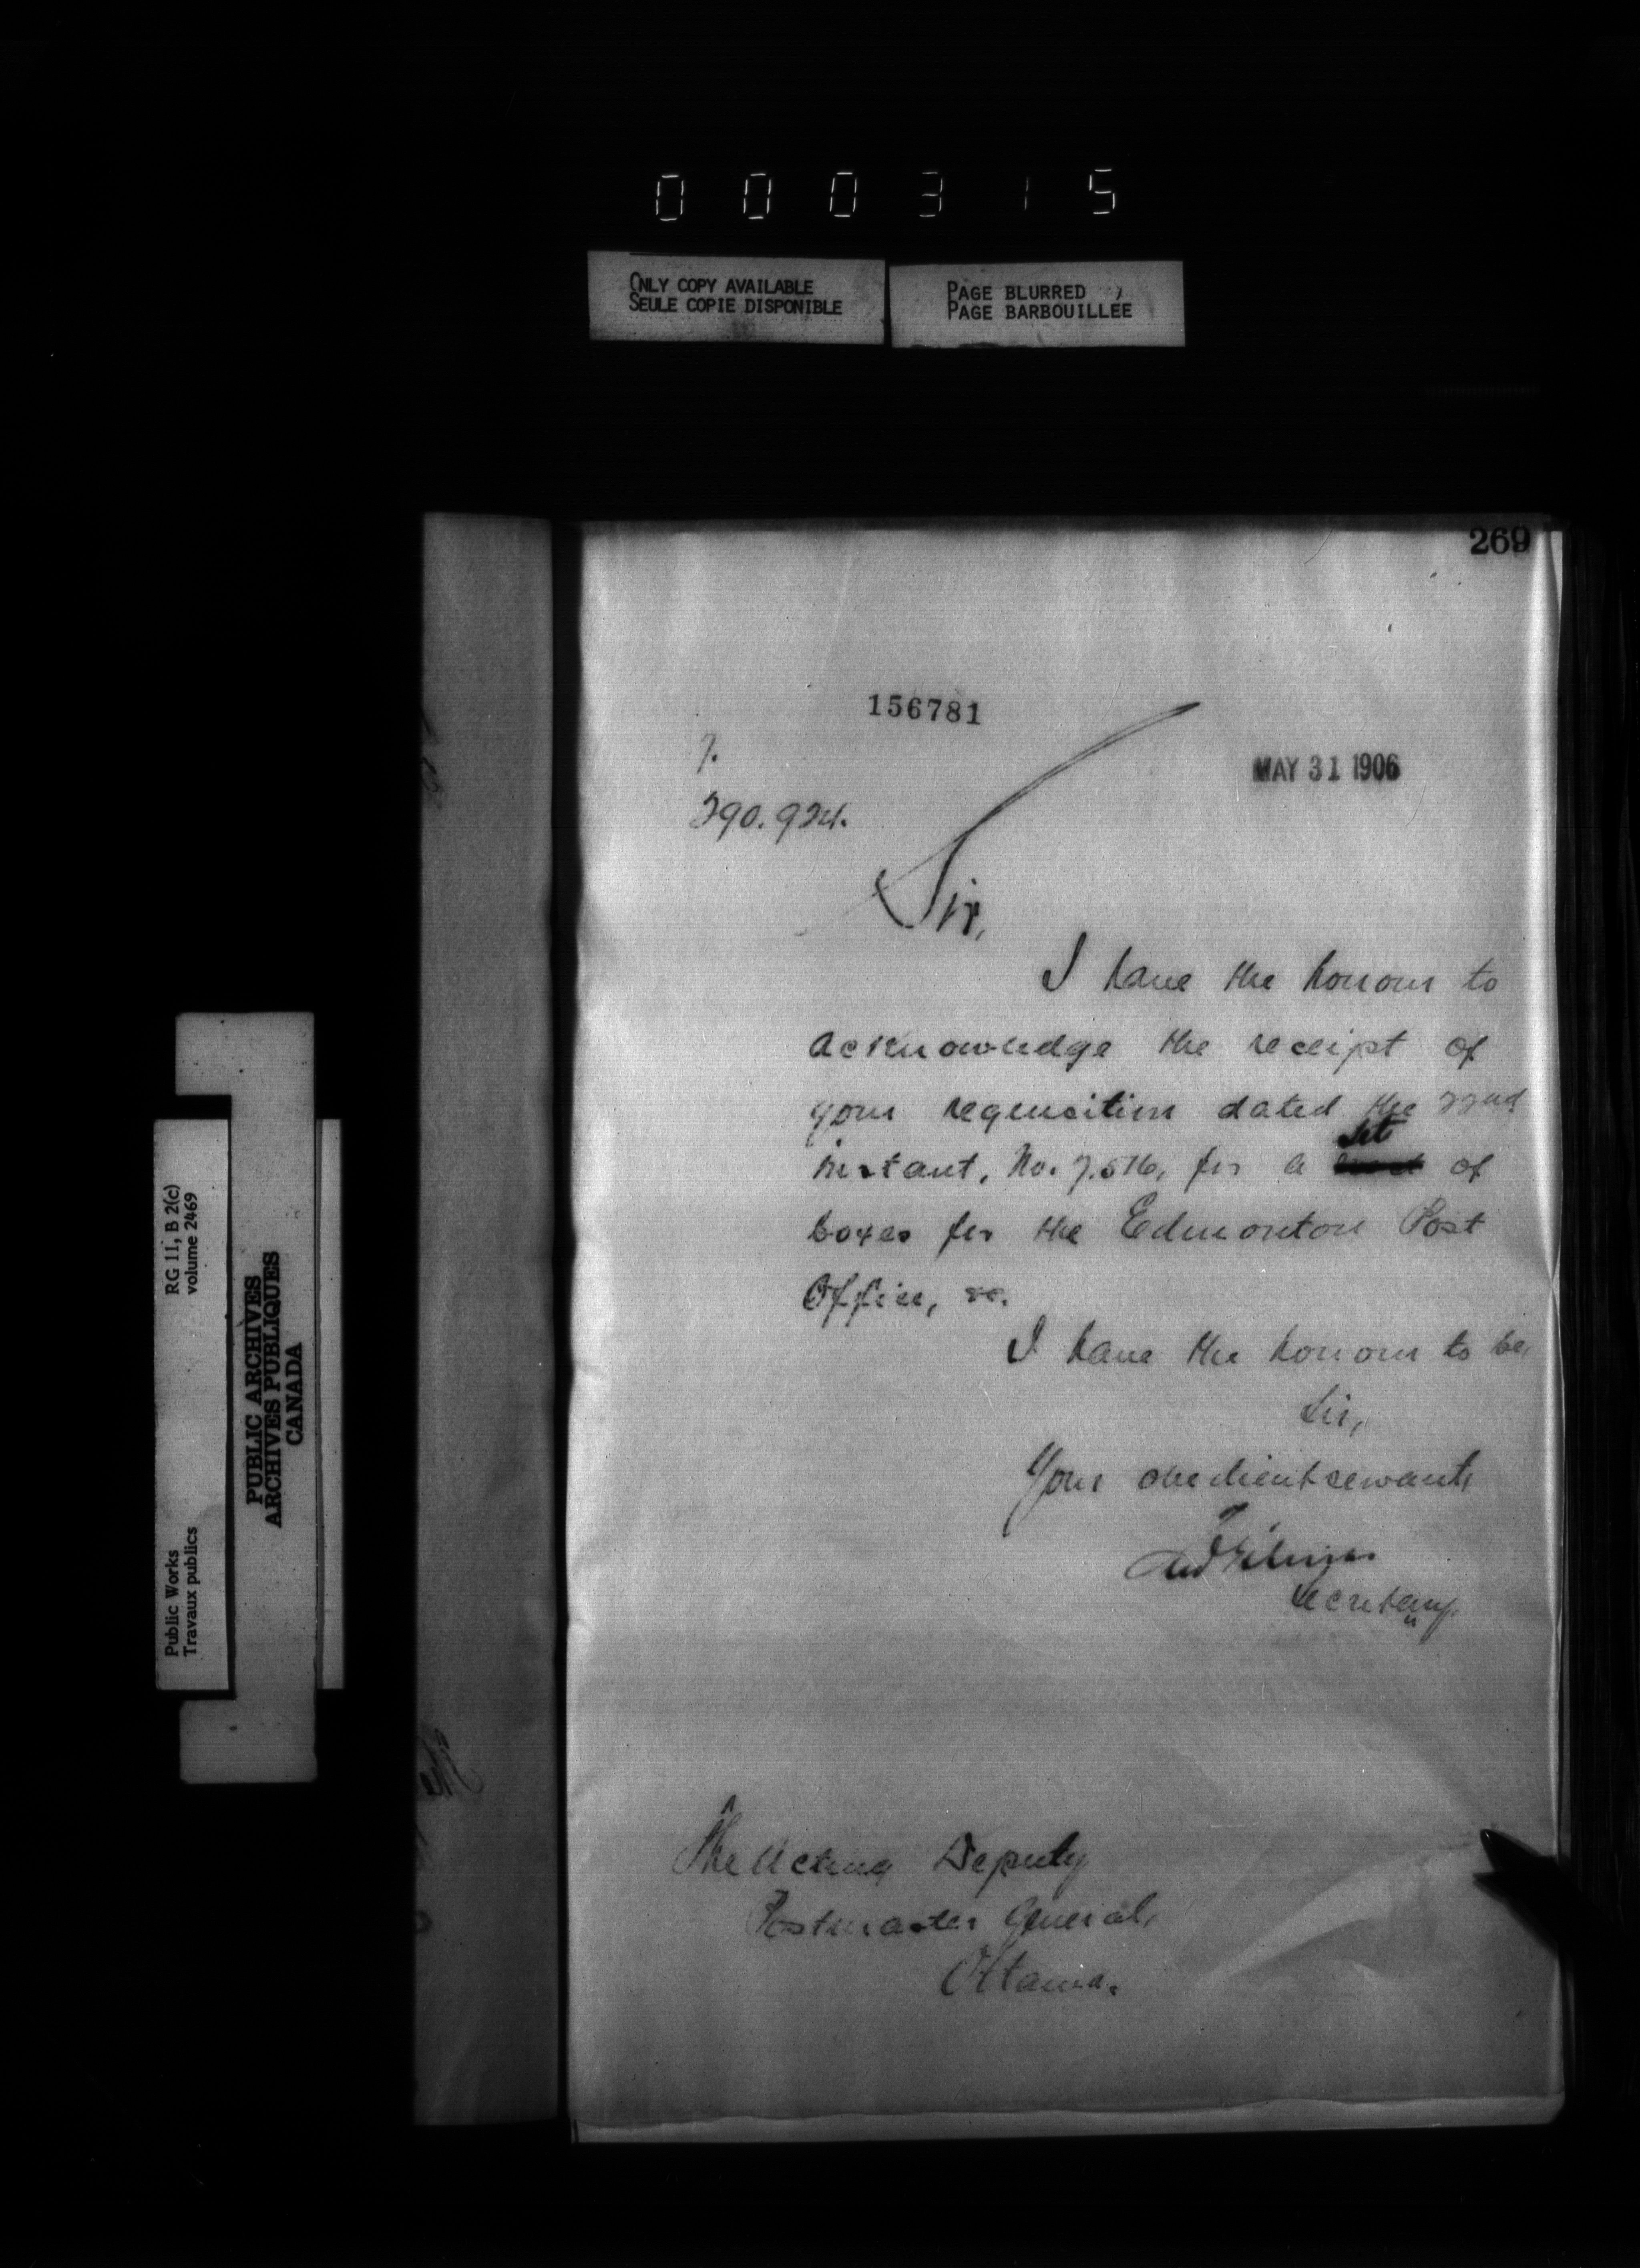 000315
ONLY COPY AVAILABLE
SEULE COPIE DISPONIBLE
PAGE BLURRED
PAGE BARBOUILLEE
269
156781
7.
290.924.
MAY 31 1906
Sir,
I have the honour to
acknowledge the receipt of
your requisition dated the 22nd
instant, No. 7.516, for a set of
boxes for the Edmonton Post
Office, &c.
I have the honour to be,
Sir,
Your obedient servant,
Secretary.
The Acting Deputy
Postmaster General,
Ottawa.
RG 11, B 2(c)
volume 2469
Public Works
Travaux publics
PUBLIC ARCHIVES
ARCHIVES PUBLIQUES
CANADA